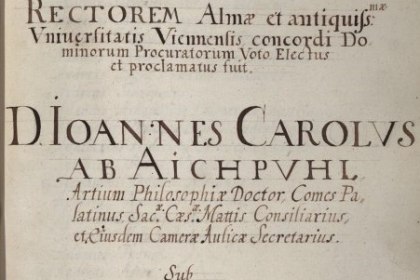 RECTOREM Almæ et antiquiss:mæ
Vniuersitatis Viennensis concordi Do
minorum Procuratorum Voto Electus
et proclamatus fuit.
D. IOANNES CAROLVS
AB AICHPVHL
Artium Philosophiæ Doctor, Comes Pa,
latinus, Sac:æ Cæs:æ Mattis Consiliarius,
et, Eiusdem Cameræ Aulicæ Secretarius.
Sub